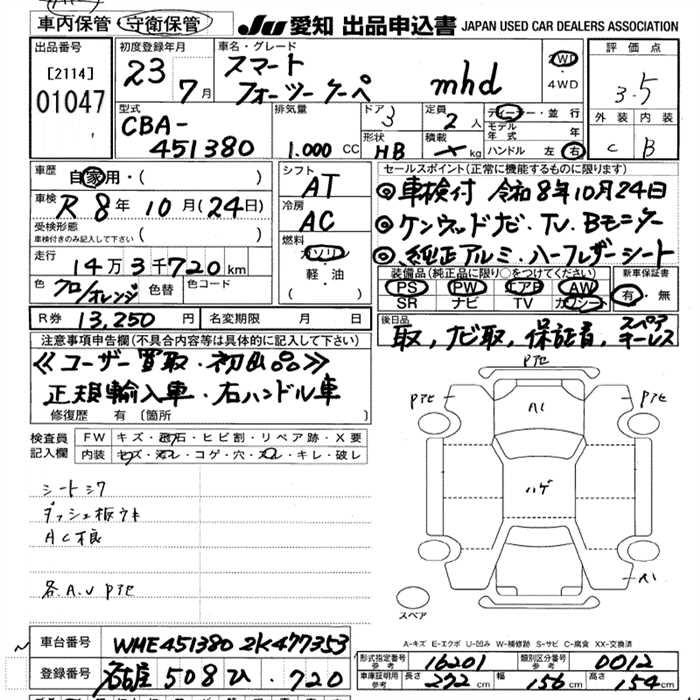 車内保管 守衛保管 JU 愛知 出品申込書 JAPAN USED CAR DEALERS ASSOCIATION
出品番号 初度登録年月 車名・グレード 評価点
[2114] 23 7月 スマート 2WD ・ 4WD 3.5
01047 フォーツークーペ mhd
型式 排気量 ドア 定員 ディーラー・並行 外装 内装
CBA-451380 1.000 CC 3 2人 モデル年式 年 C B
形状 HB 積載 kg ハンドル 左 右
車歴 自家用・( ) シフト AT セールスポイント(正常に機能するものに限ります)
車検 R8年10月(24日) 冷房 AC ◎車検付 令和8年10月24日
受検形態 車検付きのみ記入して下さい ( ) ◎ケンウッドナビ・TV・Bモニター
走行 14万3千720km 燃料 ガソリン ・ 軽・油 ( ) ◎純正アルミ・ハーフレザーシート
色 クロ/オレンジ 色替 色コード 装備品(純正品に限り○をつけてください) 新車保証書
PS PW エアB AW 有・無
SR ナビ TV カワシート
R券 13,250円 名変期限 月 日 後日品 取, ナビ取, 保証書, スペアキーレス
注意事項申告欄(不具合内容等は具体的に記入して下さい)
≪ユーザー買取・初出品≫
正規輸入車・右ハンドル車
修復歴 有 〔箇所 〕
検査員記入欄 FW キズ・飛石・ヒビ割・リペア跡・X要
内装 キズ・汚レ・コゲ・穴・スレ・キレ・破レ
シートシワ
ダッシュ板ウキ
AC良
各A.U Pアセ
Pアセ
Pアセ A1 Pアセ
ハゲ
A1
スペア
A-キズ E-エクボ U-凹み W-補修跡 S-サビ C-腐食 XX-交換済
車台番号 WME4513802K477353 形式指定番号 参考 16201 類別区分番号 参考 0012
登録番号 名古屋 508 ひ 720 車庫証明用 参考 長さ 272cm 幅 156cm 高さ 154cm